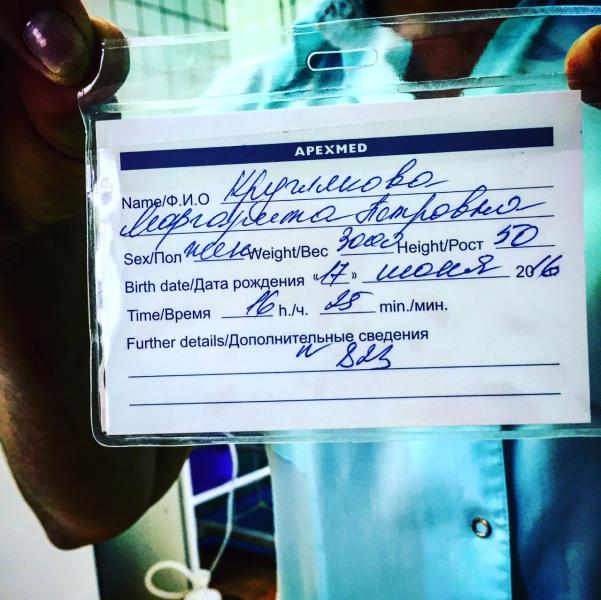 APEXMED
Name/Ф.И.О Круглякова
Маргарита Петровна
Sex/Пол жен Weight/Вес Height/Рост 50
Birth date/Дата рождения «17» июня 2016
Time/Время 16 h./ч. 25 min./мин.
Further details/Дополнительные сведения
N 823